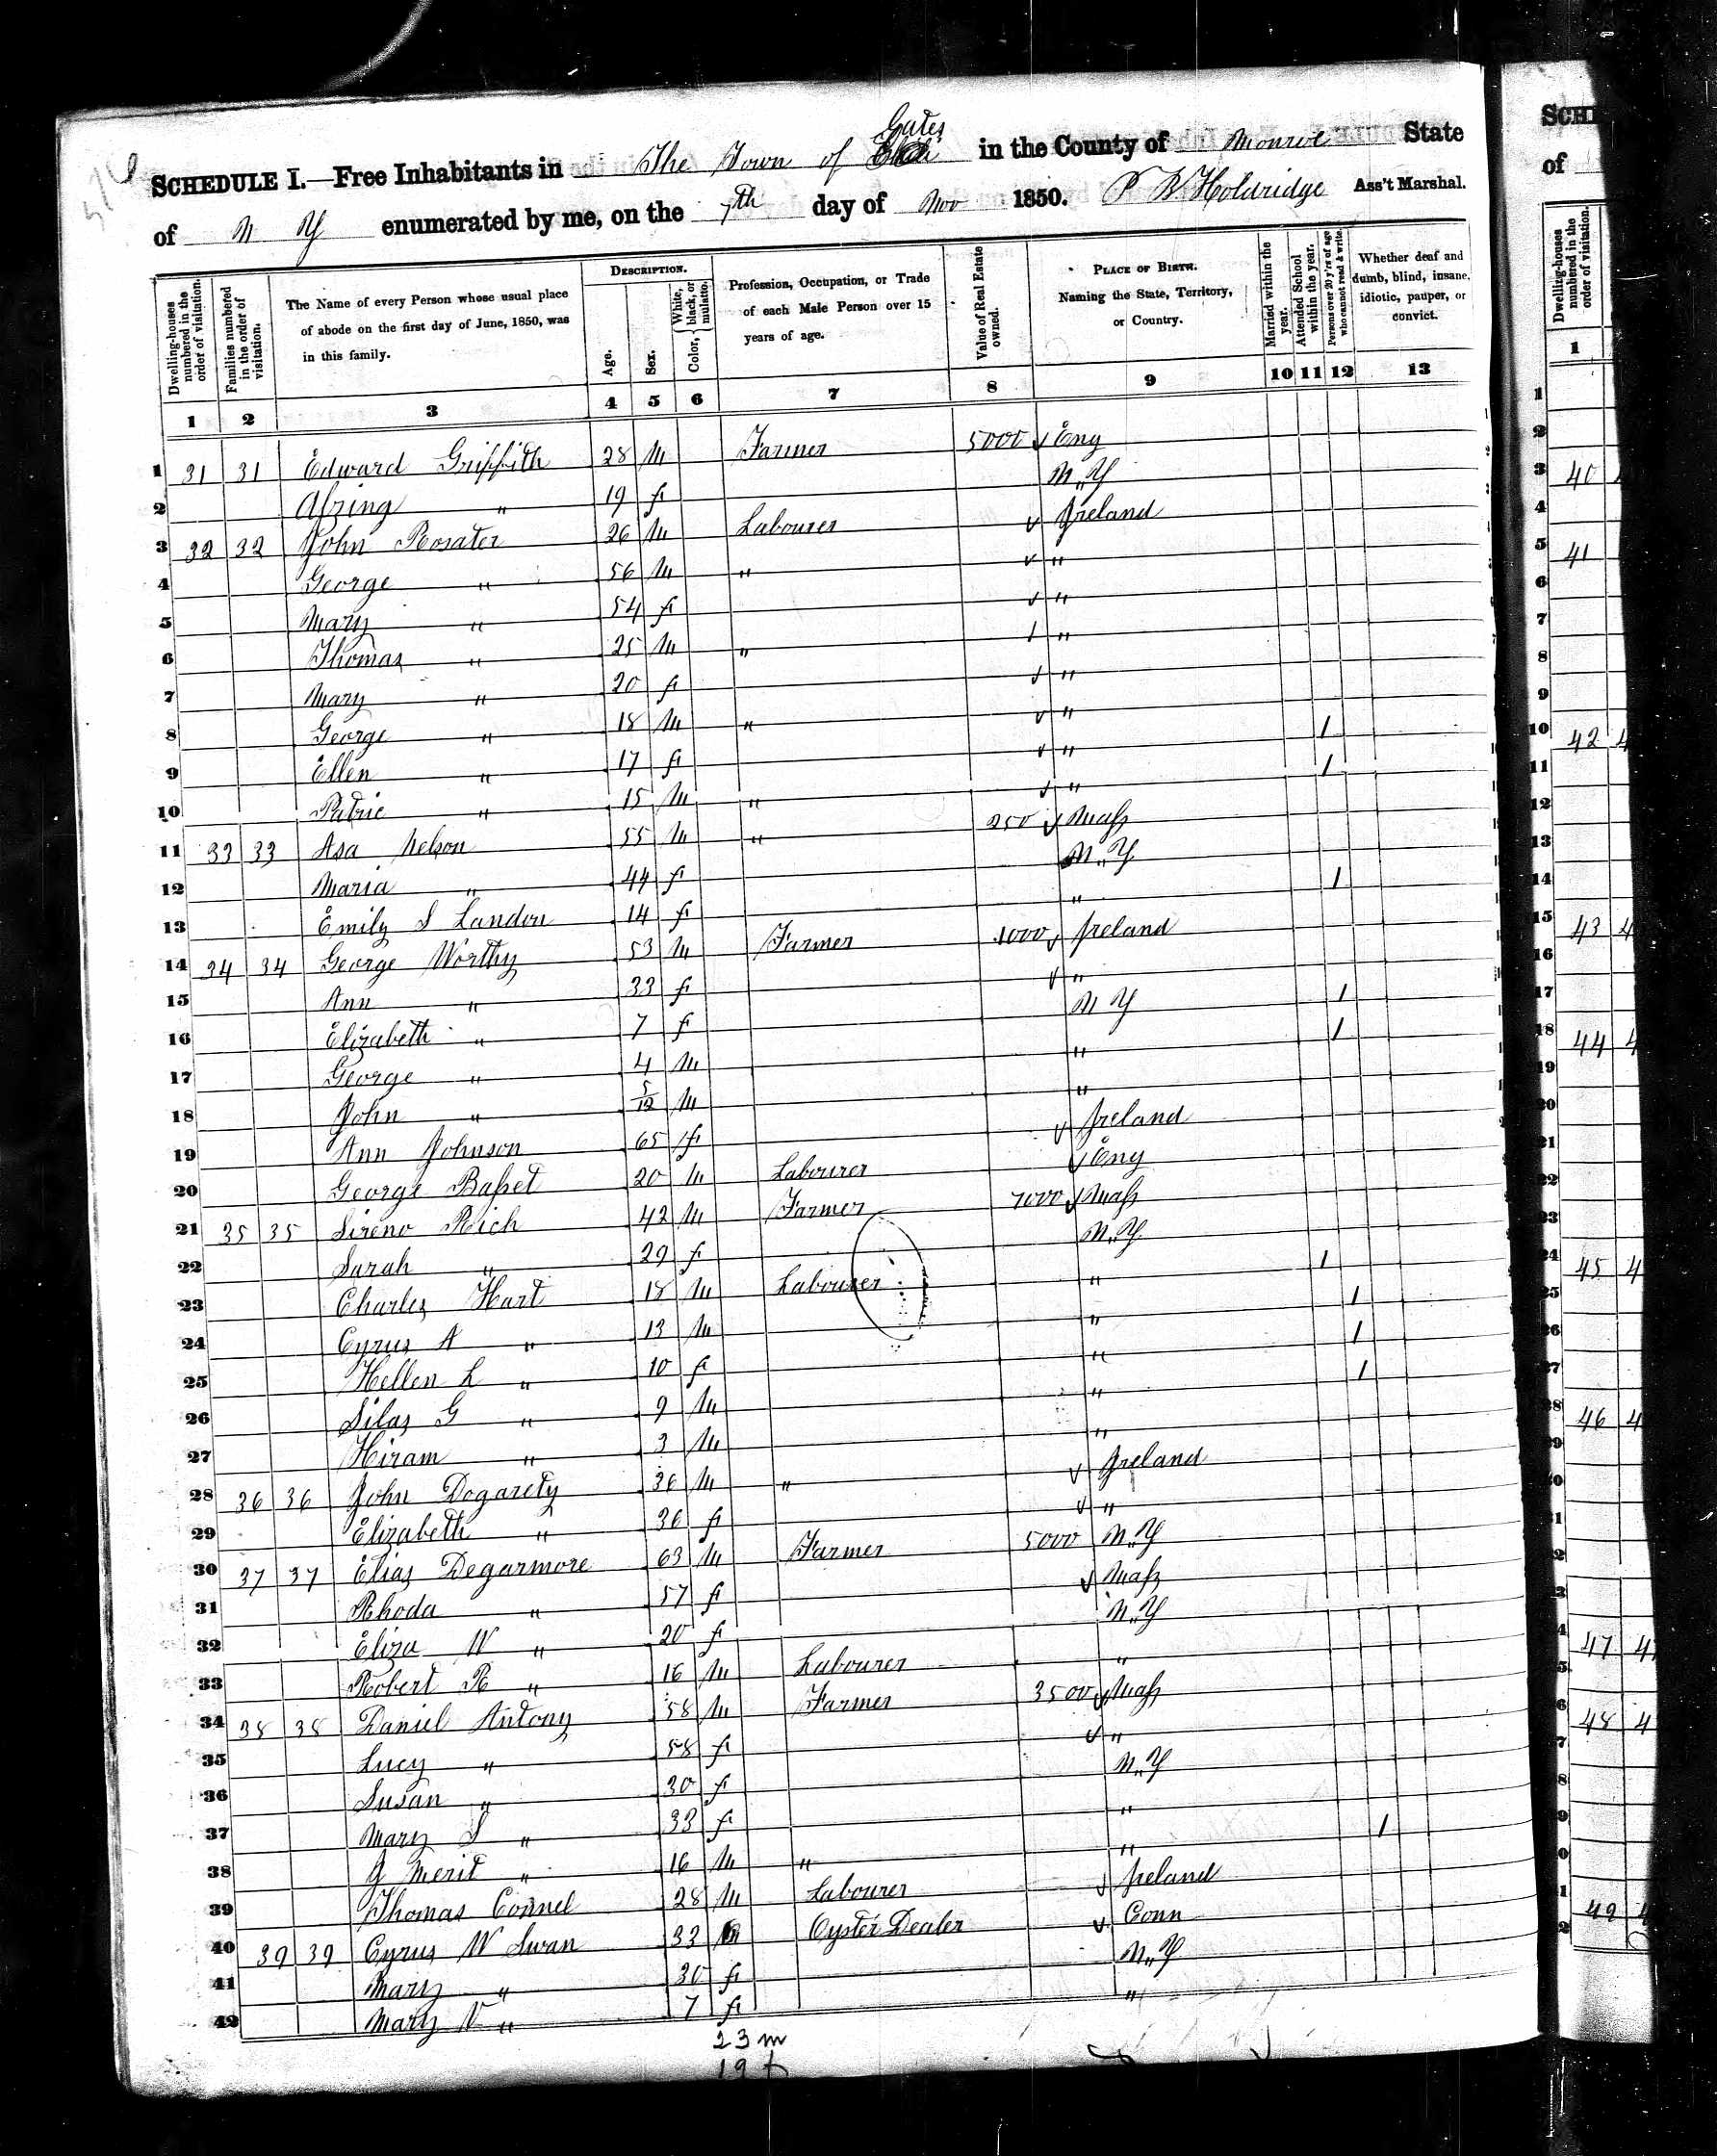 Gates
SCHEDULE I.—Free Inhabitants in The Town of in the County of Monroe State
of N Y enumerated by me, on the 7th day of Nov 1850. P B Holdridge Ass't Marshal.
Dwelling-houses numbered in the order of visitation.
Families numbered in the order of visitation.
The Name of every Person whose usual place of abode on the first day of June, 1850, was in this family.
DESCRIPTION.
Age.
Sex.
Color, { White, black, or mulatto.
Profession, Occupation, or Trade of each Male Person over 15 years of age.
Value of Real Estate owned.
PLACE OF BIRTH. Naming the State, Territory, or Country.
Married within the year.
Attended School within the year.
Persons over 20 y'rs of age who cannot read & write.
Whether deaf and dumb, blind, insane, idiotic, pauper, or convict.
1 2 3 4 5 6 7 8 9 10 11 12 13
1 31 31 Edward Griffith 28 m Farmer 5000 ✓ Eng
2 Abzina " 19 f N.Y
3 32 32 John Rosater 26 m Labourer ✓ Ireland
4 George " 56 m " ✓ "
5 Mary " 54 f ✓ "
6 Thomas " 25 m " ✓ "
7 Mary " 20 f ✓ "
8 George " 18 m " ✓ " 1
9 Ellen " 17 f ✓ " 1
10 Patric " 15 m " ✓ "
11 33 33 Asa Nelson 55 m " 250 ✓ Mass
12 Maria " 44 f N.Y
13 Emily S Landon 14 f " 1
14 34 34 George Worthy 53 m Farmer 1000 ✓ Ireland
15 Ann " 33 f ✓ "
16 Elizabeth " 7 f N Y 1
17 George " 4 m " 1
18 John " 5/12 m "
19 Ann Johnson 65 f ✓ Ireland
20 George Basset 20 m Labourer ✓ Eng
21 35 35 Sireno Rich 42 m Farmer 7000 ✓ Mass
22 Sarah " 29 f N.Y.
23 Charles Hart 18 m Labourer " 1
24 Cyrus A " 13 m " 1
25 Hellen L " 10 f " 1
26 Silas G " 9 m " 1
27 Hiram " 3 m "
28 36 36 John Dogarety 36 m " ✓ Ireland
29 Elizabeth " 36 f ✓ "
30 37 37 Elias Degarmore 63 m Farmer 5000 N.Y
31 Rhoda " 57 f ✓ Mass
32 Eliza W " 20 f N.Y
33 Robert R " 16 m Labourer "
34 38 38 Daniel Antony 58 m Farmer 3500 ✓ Mass
35 Lucy " 58 f ✓ "
36 Susan " 30 f N.Y
37 Mary S " 23 f "
38 J Merit " 16 m " " 1
39 Thomas Connel 28 m Labourer ✓ Ireland
40 39 39 Cyrus W Swan 33 m Oyster Dealer ✓ Conn
41 Mary " 30 f N.Y
42 Mary V " 7 f "
23 m
19 f
SCHE
of
Dwelling-houses numbered in the order of visitation.
1
40
41
42
43
44
45
46
47
48
49